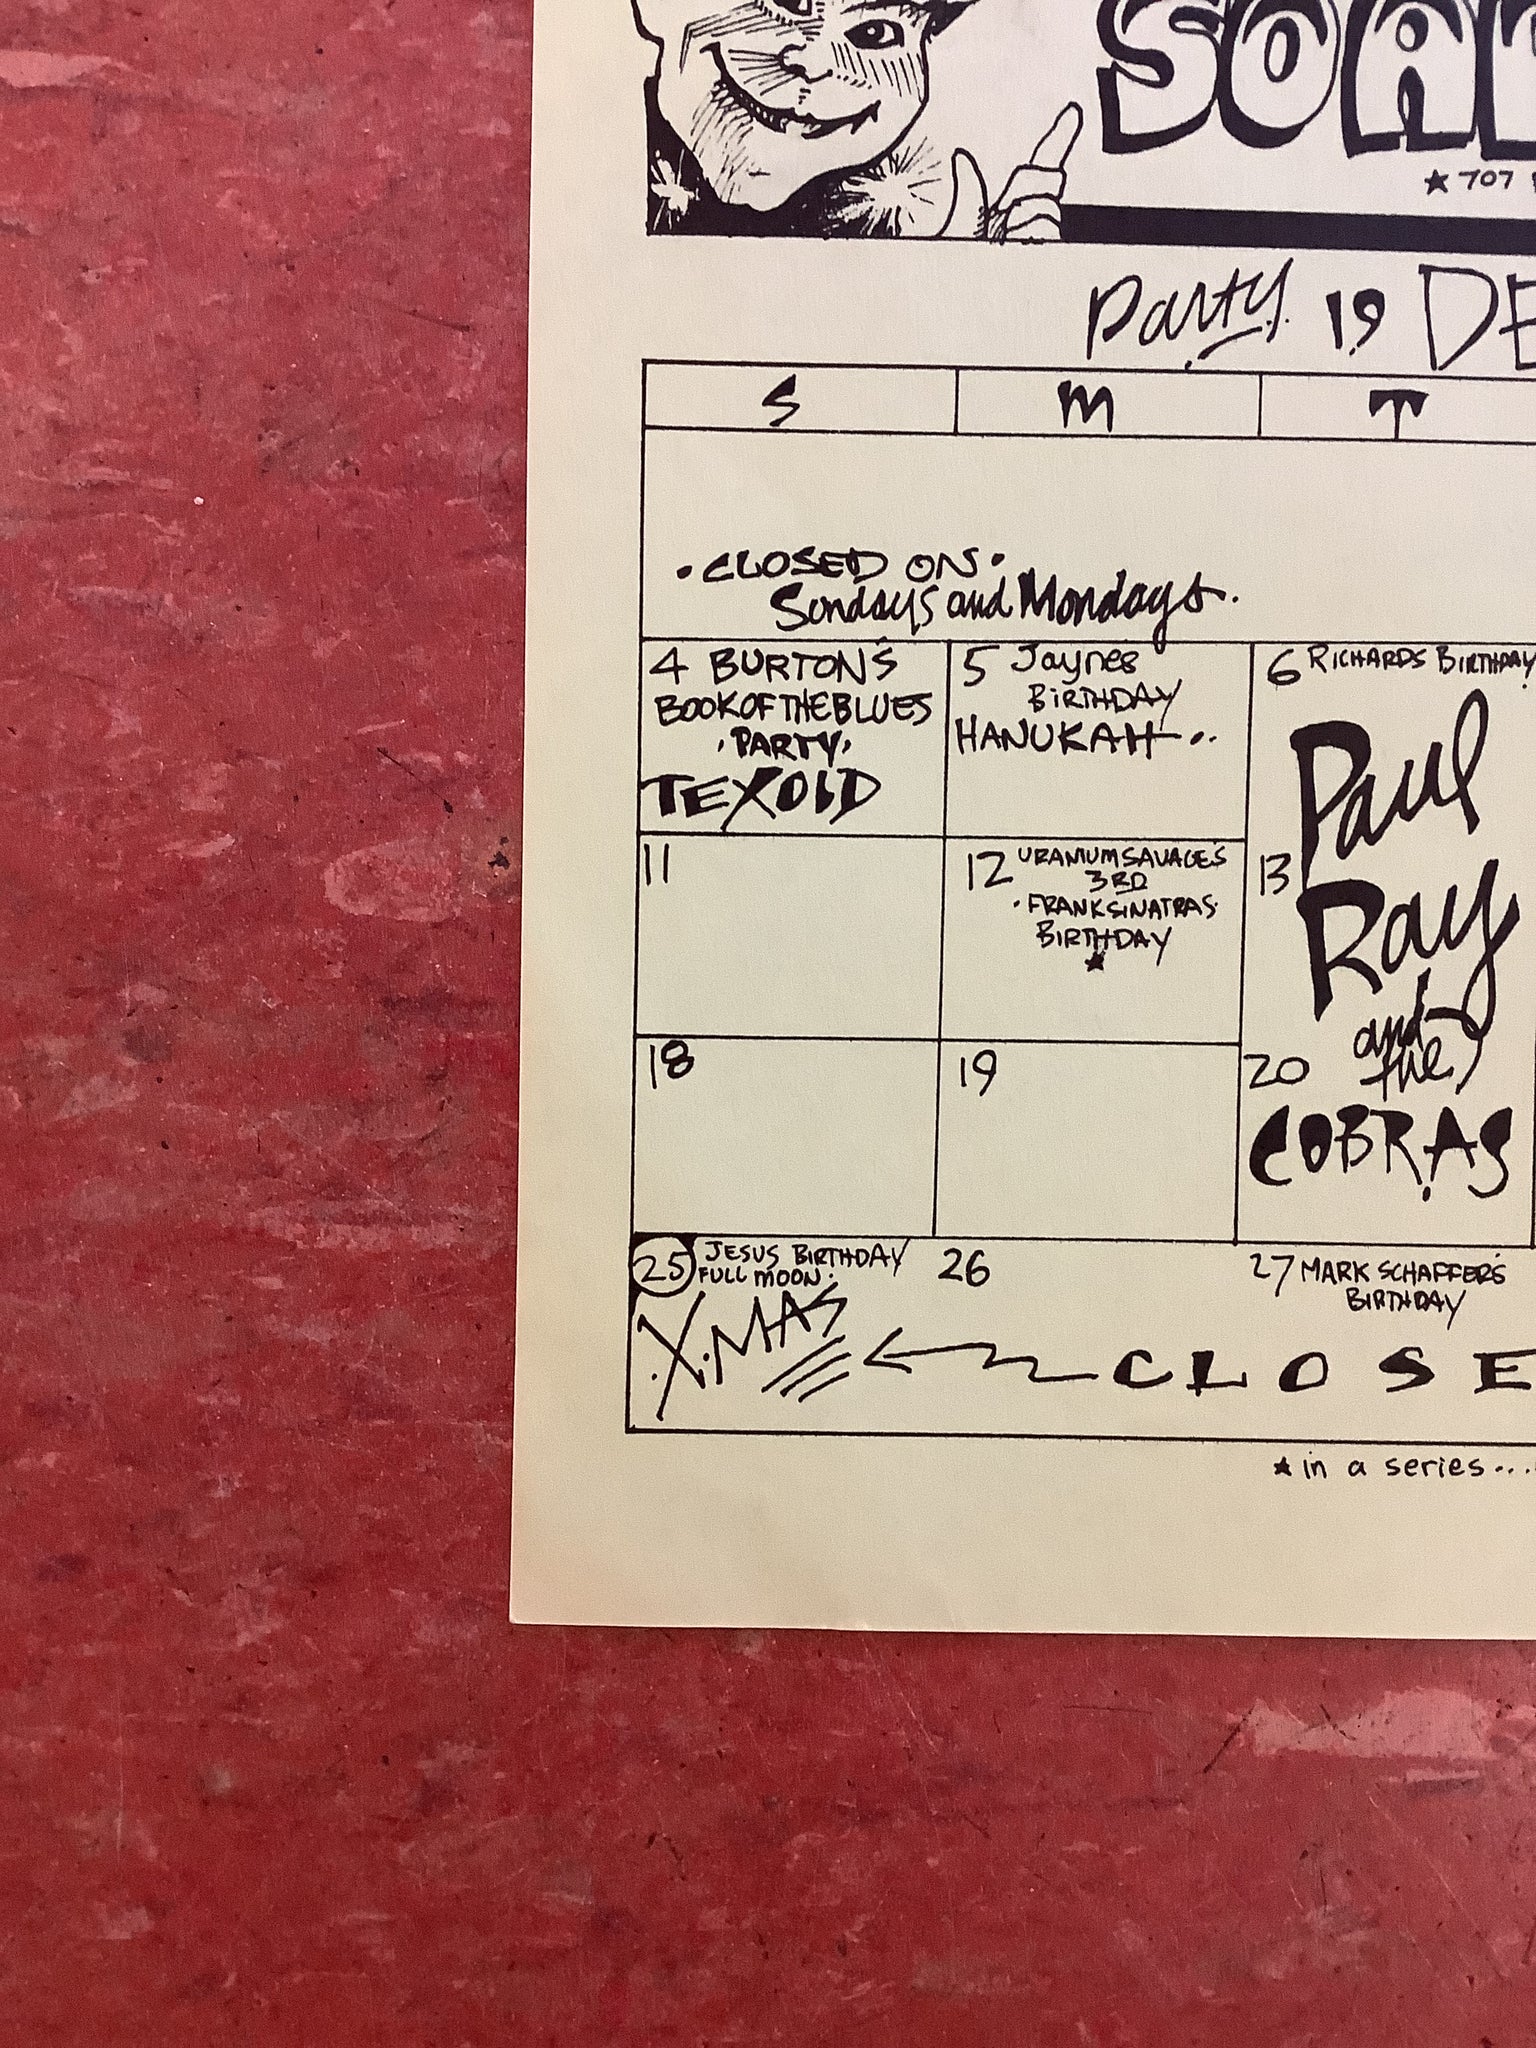 SOA
★ 707
Party 19 DE
S M T
• CLOSED ON •
Sundays and Mondays.
4 BURTON'S
BOOK OF THE BLUES
PARTY
TEXOID
5 Jaynes
BIRTHDAY
HANUKAH ..
6 RICHARDS BIRTHDAY
Paul
Ray
and
the
COBRAS
11
12 URANIUM SAVAGES
3RD
• FRANK SINATRAS
BIRTHDAY
★
13
18
19
20
25 JESUS BIRTHDAY
FULL MOON.
X.MAS
26
27 MARK SCHAFFER'S
BIRTHDAY
CLOSE
★ in a series...